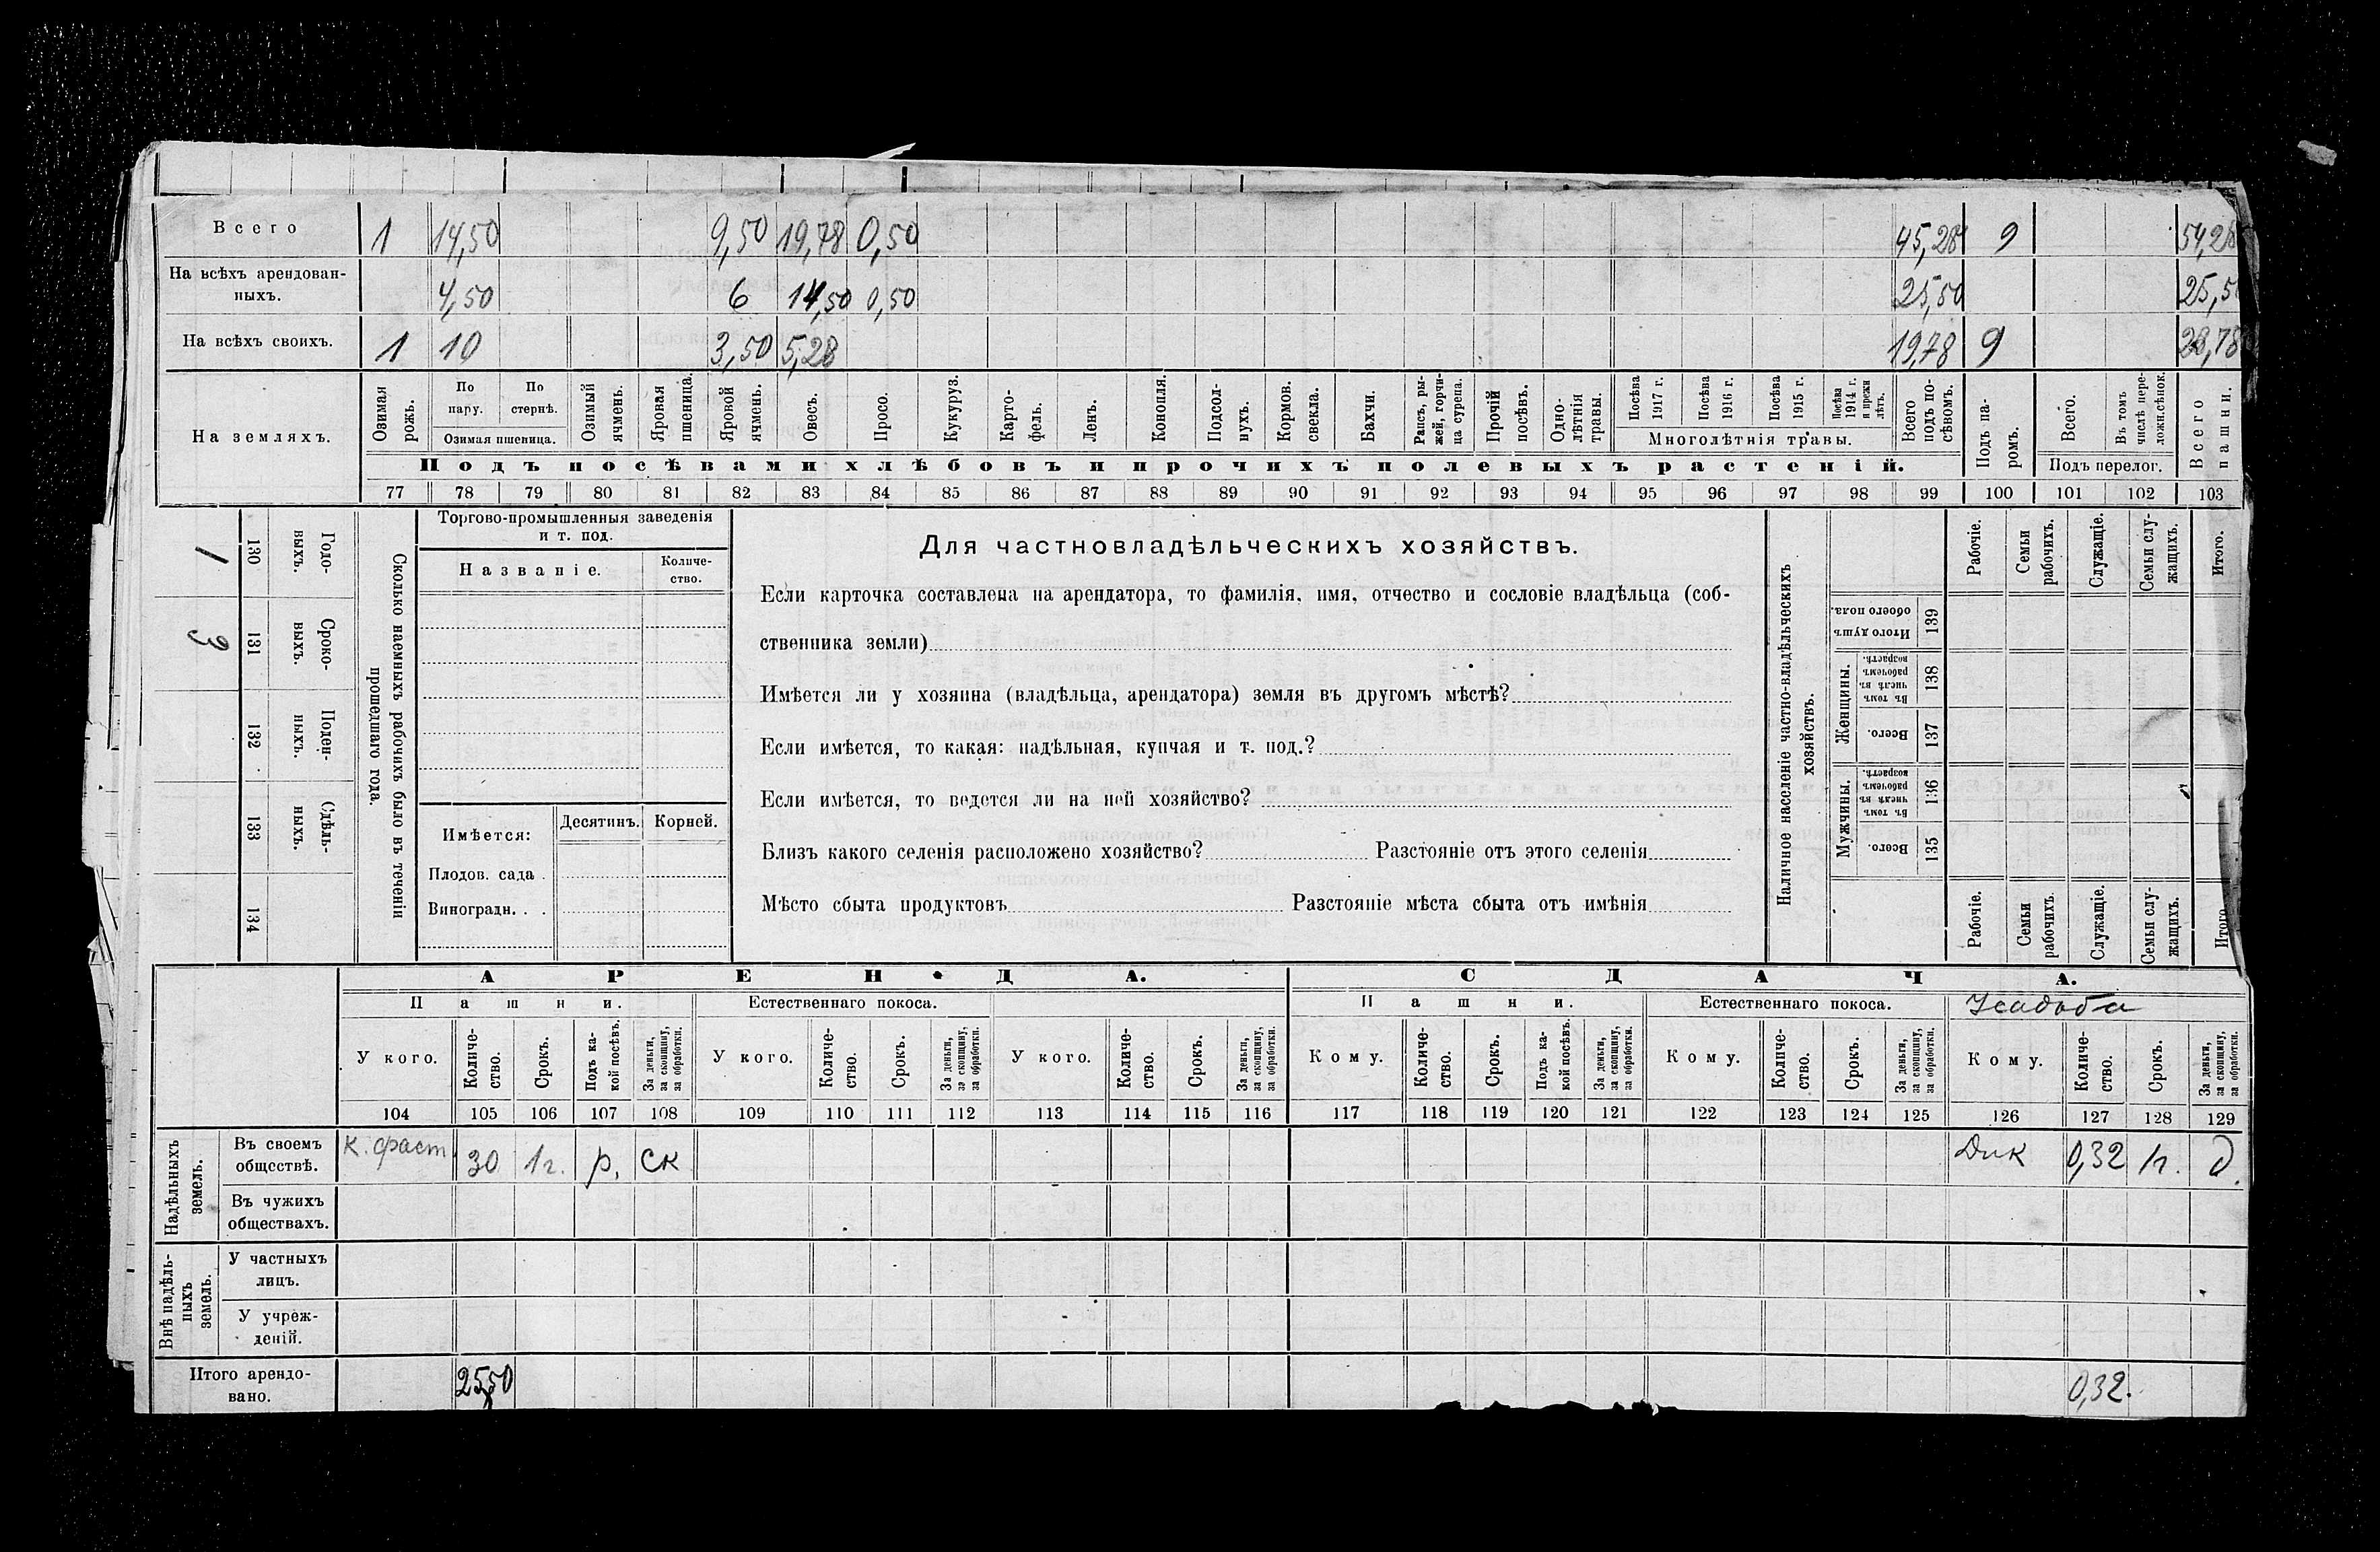 Всего 1 14,50 9,50 19,78 0,50 45,28 9 54,28
На всѣхъ арендован-
ныхъ. 4,50 6 14,50 0,50 25,50 25,5
На всѣхъ своихъ. 1 10 3,50 5,28 19,78 9 28,78
На земляхъ.
Озимая рожь.
По пару.
По стернѣ.
Озимая пшеница.
Озимый ячмень.
Яровая пшеница.
Яровой ячмень.
Овесъ.
Просо.
Кукуруз.
Карто-
фель.
Ленъ.
Конопля.
Подсол-
нухъ.
Кормов. свекла.
Бахчи.
Рапсъ, ры-
жей, горчи-
ца сурепа.
Прочій посѣвъ.
Одно-
лѣтнія травы.
Посѣва 1917 г.
Посѣва 1916 г.
Посѣва 1915 г.
Посѣва 1914 г. и прежн лѣтъ.
Многолѣтнія травы.
Всего подъ по-
сѣвомъ.
Подъ па-
ромъ.
Всего.
Въ томъ числѣ пере-
ложн.сѣнок.
Подъ перелог.
Всего пашни.
Подъ посѣвами хлѣбовъ и прочихъ полевыхъ растеній.
77 78 79 80 81 82 83 84 85 86 87 88 89 90 91 92 93 94 95 96 97 98 99 100 101 102 103
Сколько наемныхъ рабочихъ было въ теченіи
прошедшаго года.
Годо-
выхъ. 130 1
Сроко-
выхъ. 131 3
Поден-
ныхъ. 132
Сдѣль-
ныхъ. 133
134
Торгово-промышленныя заведенія
и т. под.
Названіе.
Количе-
ство.
Имѣется: Десятинъ. Корней.
Плодов. сада .
Виноградн. . .
Для частновладѣльческихъ хозяйствъ.
Если карточка составлена на арендатора, то фамилія, имя, отчество и сословіе владѣльца (соб-
ственника земли)
Имѣется ли у хозяина (владѣльца, арендатора) земля въ другомъ мѣстѣ?
Если имѣется, то какая: надѣльная, купчая и т. под.?
Если имѣется, то ведется ли на ней хозяйство?
Близъ какого селенія расположено хозяйство? Разстояніе отъ этого селенія
Мѣсто сбыта продуктовъ Разстояніе мѣста сбыта отъ имѣнія
Наличное населеніе частно-владѣльческихъ
хозяйствъ.
Рабочіе.
Семьи рабочихъ.
Служащіе.
Семьи слу-
жащихъ.
Итого.
Итого душъ обоего пола. 139
Женщины.
Въ томъ числѣ въ рабочемъ возрастѣ. 138
Всего. 137
Мужчины.
Въ томъ числѣ въ рабочемъ возрастѣ. 136
Всего. 135
Рабочіе.
Семьи рабочихъ.
Служащіе.
Семьи слу-
жащихъ.
Итого
АРЕНДА. СДАЧА.
Пашни. Естественнаго покоса. Пашни. Естественнаго покоса. Усадьба
У кого.
Количе-
ство.
Срокъ.
Подъ ка-
кой посѣвъ.
За деньги, за скопщину, за обработки.
У кого.
Количе-
ство.
Срокъ.
За деньги, за скопщину, за обработки.
У кого.
Количе-
ство.
Срокъ.
За деньги, за скопщину, за обработки.
Кому.
Количе-
ство.
Срокъ.
Подъ ка-
кой посѣвъ.
За деньги, за скопщину, за обработки.
Кому.
Количе-
ство.
Срокъ.
За деньги, за скопщину, за обработки.
Кому.
Количе-
ство.
Срокъ.
За деньги, за скопщину, за обработки.
104 105 106 107 108 109 110 111 112 113 114 115 116 117 118 119 120 121 122 123 124 125 126 127 128 129
Надѣльныхъ земель.
Въ своемъ
обществѣ. К. фаст 30 1г. р. ск Дик 0,32 1г. д.
Въ чужихъ
обществахъ.
Внѣ надѣль-
ныхъ земель.
У частныхъ
лицъ.
У учреж-
деній.
Итого арендо-
вано. 25,50 0,32.